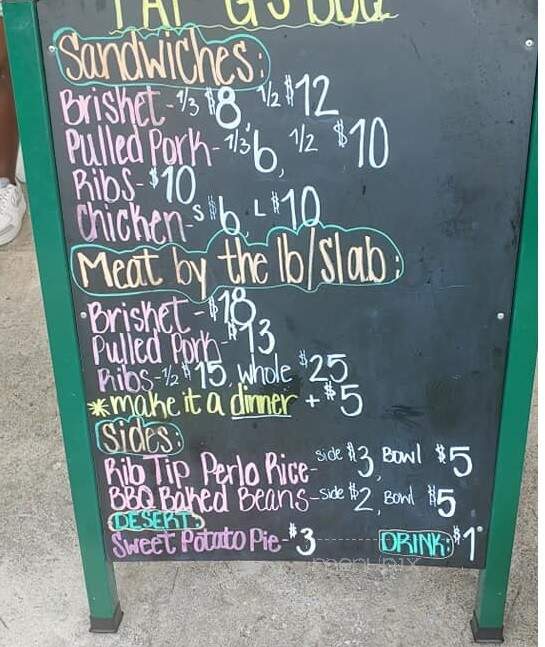 G'S BBQ
Sandwiches:
Brisket - 1/3 $8, 1/2 $12
Pulled Pork - 1/3 $6, 1/2 $10
Ribs - $10
Chicken - S $6, L $10
Meat by the lb/slab:
Brisket - $18
Pulled Pork - $13
Ribs - 1/2 $15, whole $25
*make it a dinner + $5
Sides:
Rib Tip Perlo Rice - side $3, Bowl $5
BBQ Baked Beans - side $2, Bowl $5
DESERT:
Sweet Potato Pie - $3 DRINK: $1
menupix